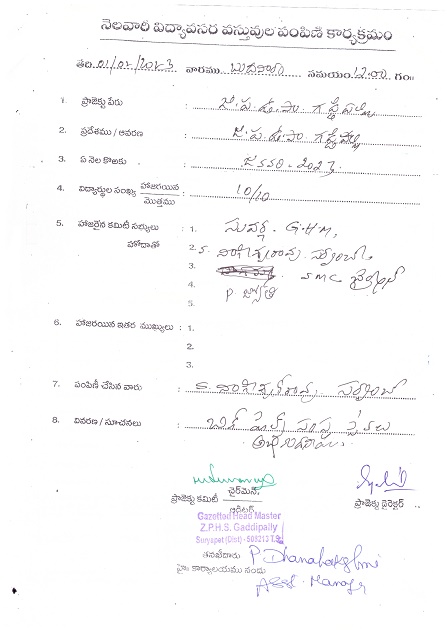 నెలవారి విద్యావసర వస్తువుల పంపిణి కార్యక్రమం
తేది 01/02/2023 వారము బుధవారం సమయం 12.00 గం॥
1. ప్రాజెక్టు పేరు : జి.ప.ఉ.పా. గడ్డిపల్లి
2. ప్రదేశము / ఆవరణ : జి.ప.ఉ.పా. గడ్డిపల్లి
3. ఏ నెల కొఱకు : జనవరి - 2023
4. విద్యార్థుల సంఖ్య హాజరయిన / మొత్తము : 10/10
5. హాజరైన కమిటీ సభ్యులు : 1. సువర్ణ G.H.M,
హోదాతో 2. S. సర్పంచ్
3. SMC చైర్మన్
4. P. జ్యోతి
5.
6. హాజరయిన ఇతర ముఖ్యులు : 1.
2.
3.
7. పంపిణీ చేసిన వారు : S. సర్పంచ్
8. వివరణ / సూచనలు :
చైర్‌మెన్
ప్రాజెక్టు కమిటీ
ఆడిటర్
ప్రాజెక్టు డైరెక్టర్
Gazetted Head Master
Z.P.H.S. Gaddipally
Suryapet (Dist) - 508213 T.S.
తనిఖీదారు P Dhanalakshmi
హై: కార్యాలయము నందు: Asst. Manager